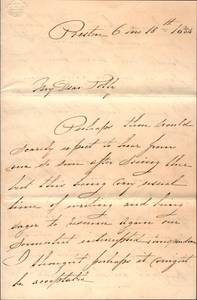 Preston 6 mo 18th 1884
My Dear Polly
Perhaps thee would
scarcely expect to hear from
me so soon after seeing thee
but this being our usual
time of writing and being
eager to resume again our
somewhat interrupted
I thought perhaps it might
be acceptable